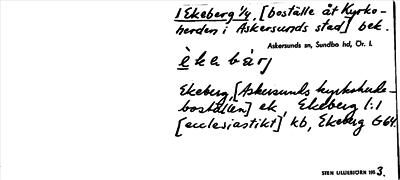 1 Ekeberg 1/4, [boställe åt Kyrko-
herden i Askersunds stad] bek.
Askersunds sn, Sundbo hd, Ör. l.
è ka bàrj
Ekeberg, [Askersunds kyrkoherde-
boställen] ek, Ekeberg 1:1
[ecclesiastikt] kb, Ekeberg G64.
STEN LILLIEBJÖRN 193 3.